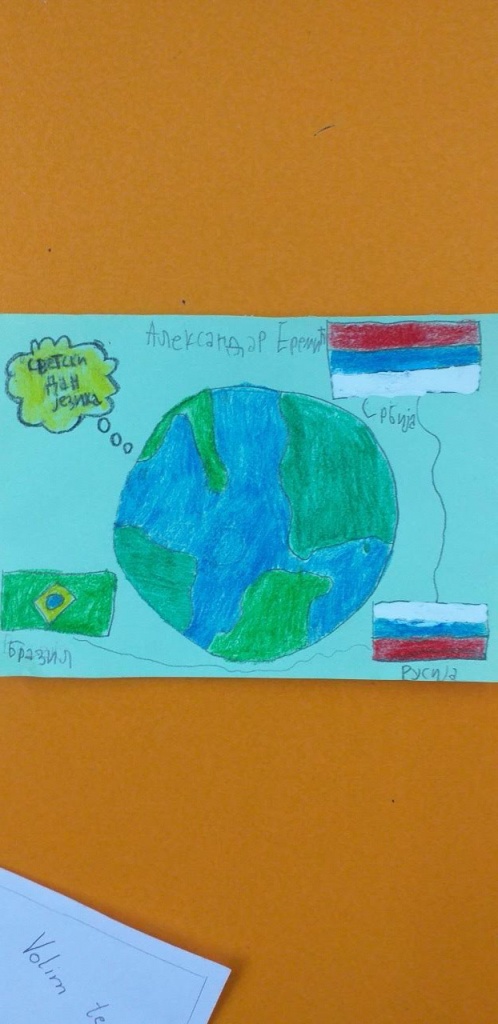 Александар Еремић
светски
дан
језика
Србија
Бразил
Русија
Volim te